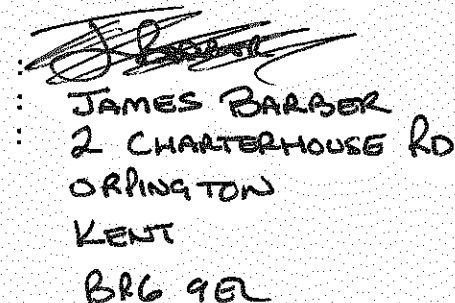 :
: JAMES BARBER
: 2 CHARTERHOUSE RD
ORPINGTON
KENT
BR6 9EL